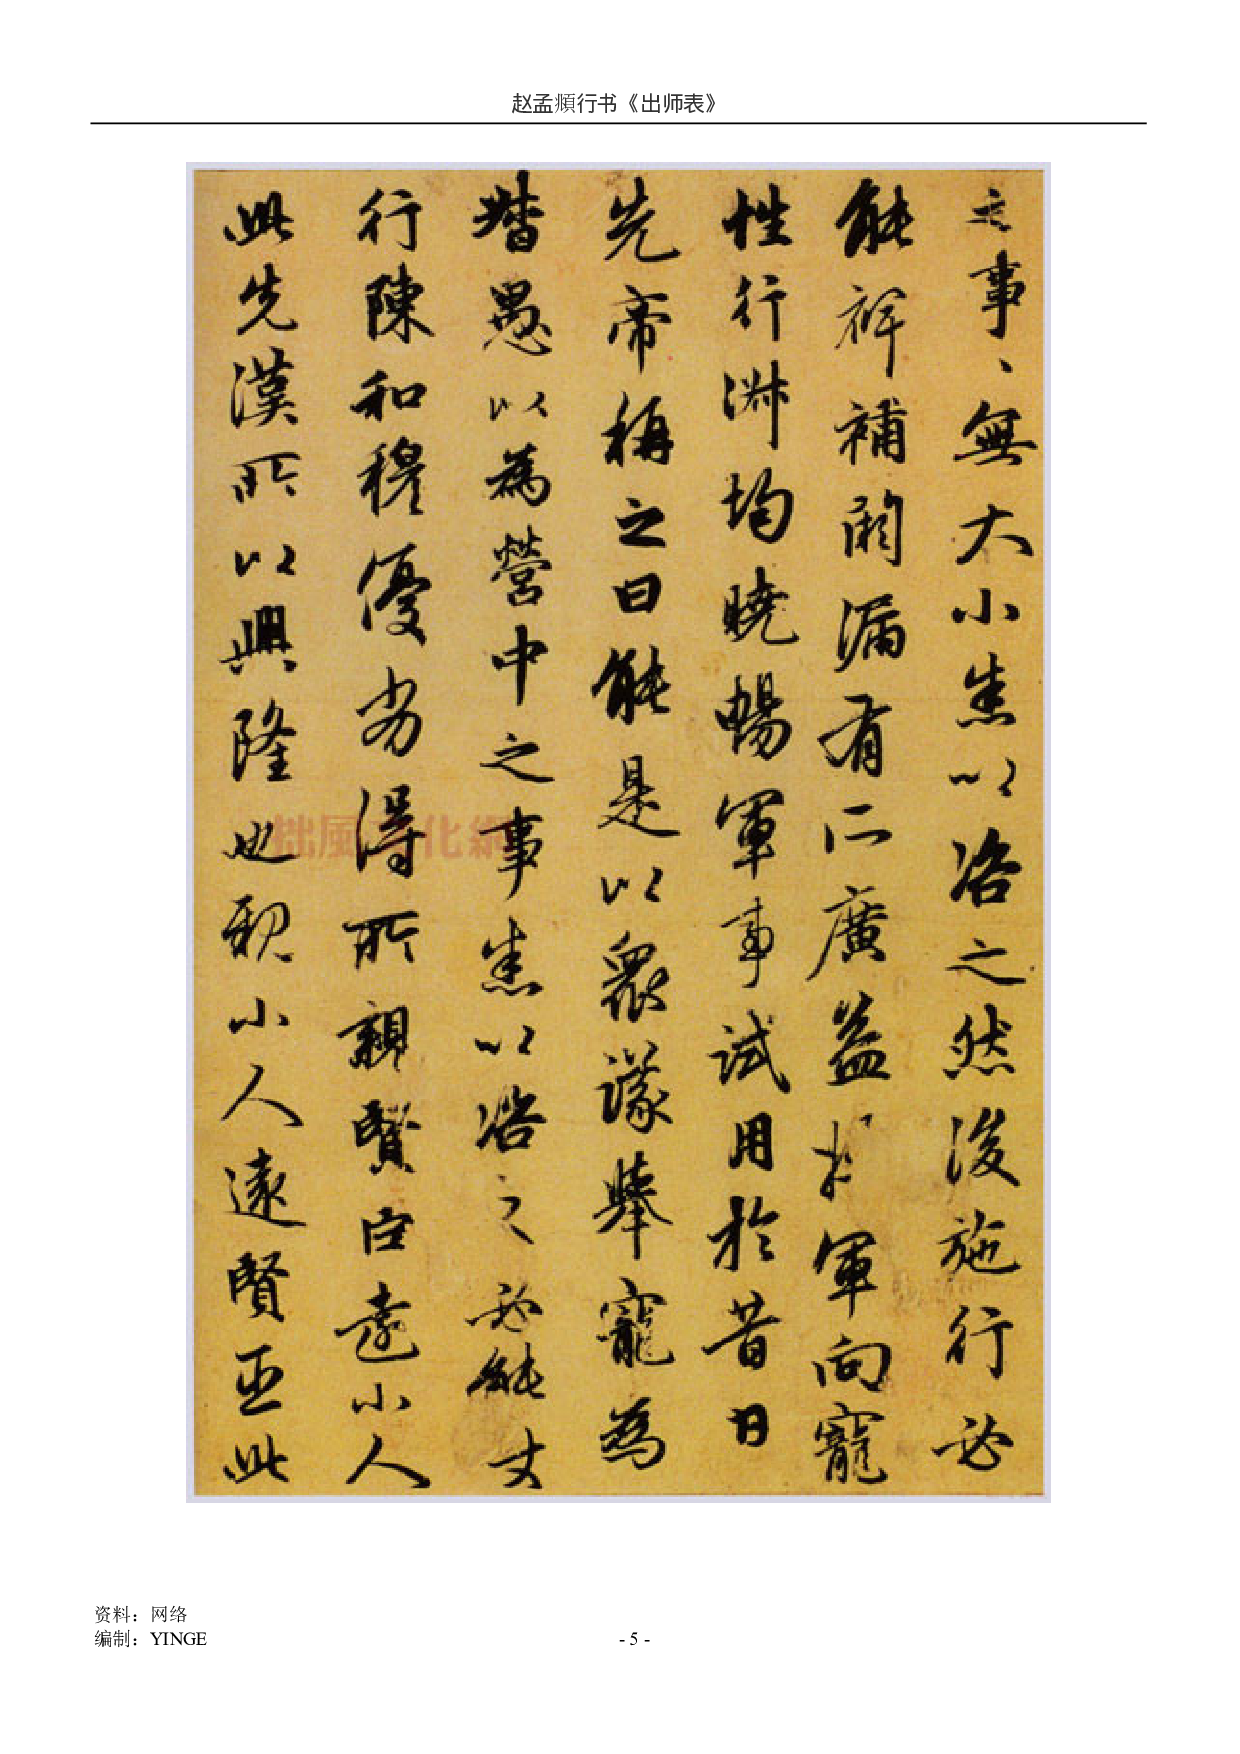 赵孟頫行书《出师表》
之事、無大小悉以咨之然後施行必
能裨補闕漏有所廣益將軍向寵
性行淑均曉暢軍事試用於昔日
先帝稱之曰能是以衆議舉寵為
督愚以為營中之事悉以咨之必能丈
行陳和穆優劣得所親賢臣遠小人
此先漢所以興隆也親小人遠賢臣此
拙風文化網
资料：网络
编制：YINGE
- 5 -